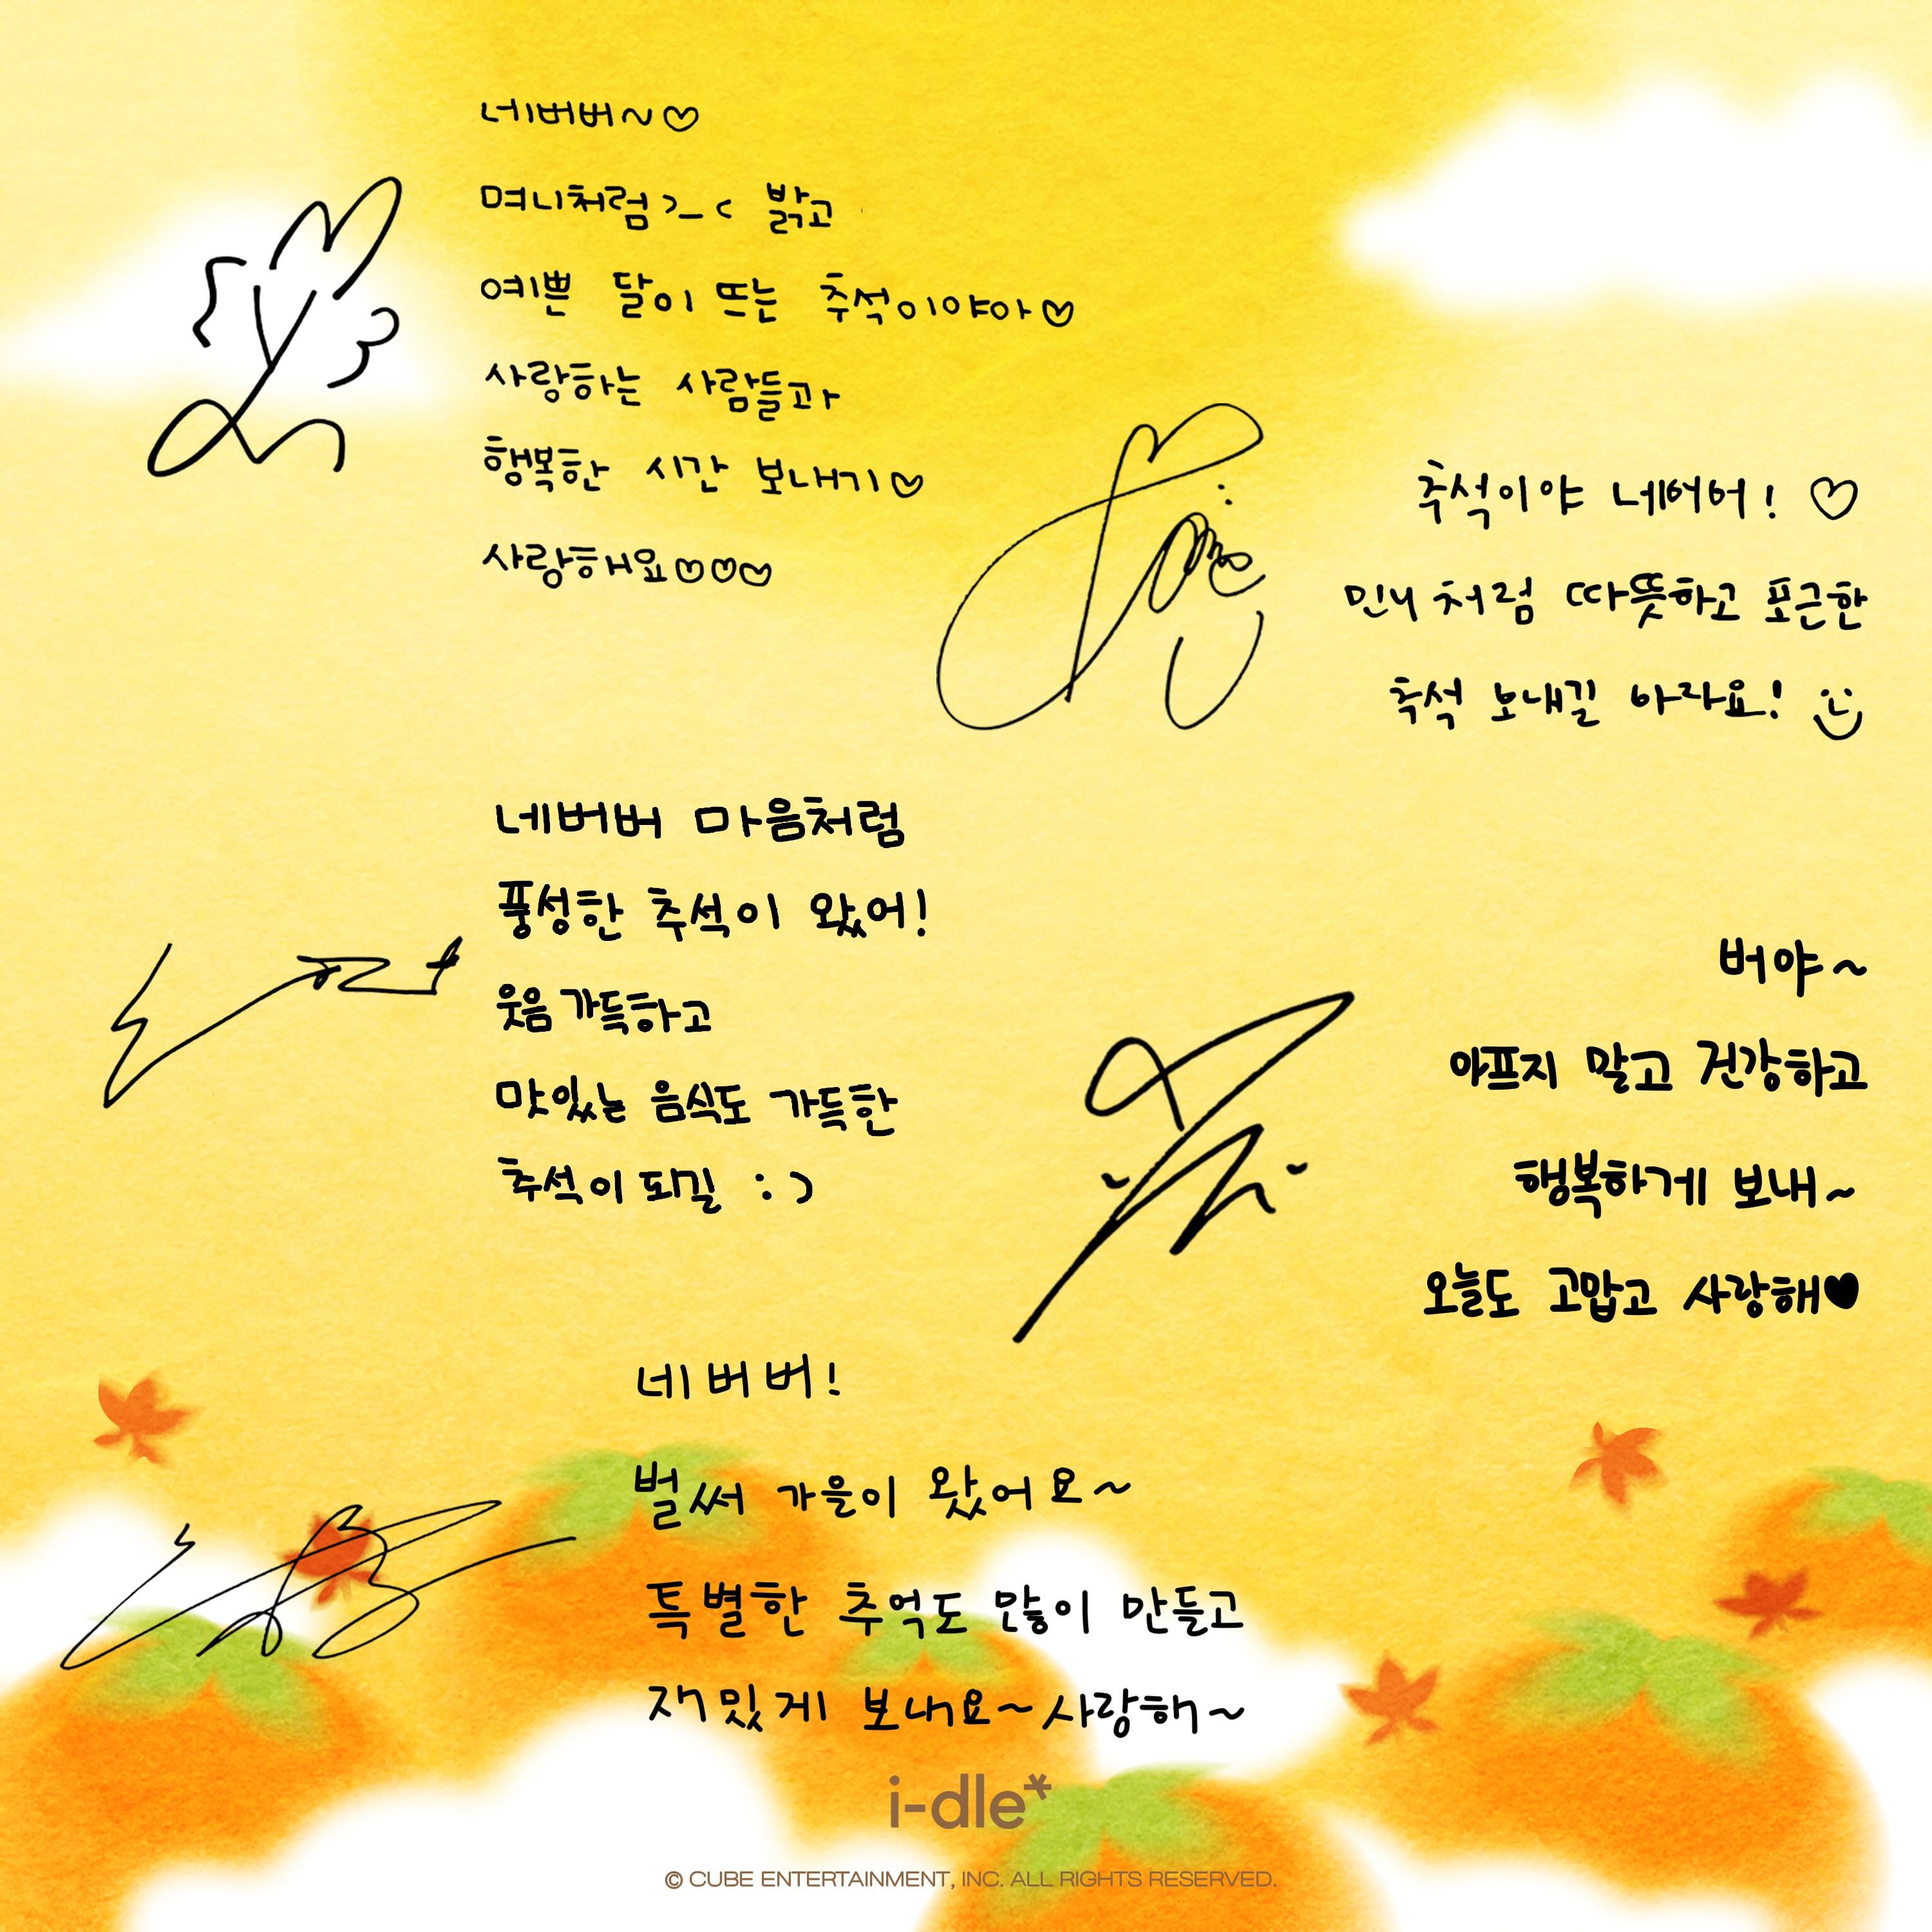 네버버~♡
며니처럼>_< 밝고
예쁜 달이 뜨는 추석이야아♡
사랑하는 사람들과
행복한 시간 보내기♡
사랑해요♡♡♡
추석이야 네버버! ♡
민니처럼 따뜻하고 포근한
추석 보내길 바라요!
네버버 마음처럼
풍성한 추석이 왔어!
웃음 가득하고
맛있는 음식도 가득한
추석이 되길 :)
버야~
아프지 말고 건강하고
행복하게 보내~
오늘도 고맙고 사랑해♥
네버버!
벌써 가을이 왔어요~
특별한 추억도 많이 만들고
재밌게 보내요~사랑해~
i-dle*
© CUBE ENTERTAINMENT, INC. ALL RIGHTS RESERVED.